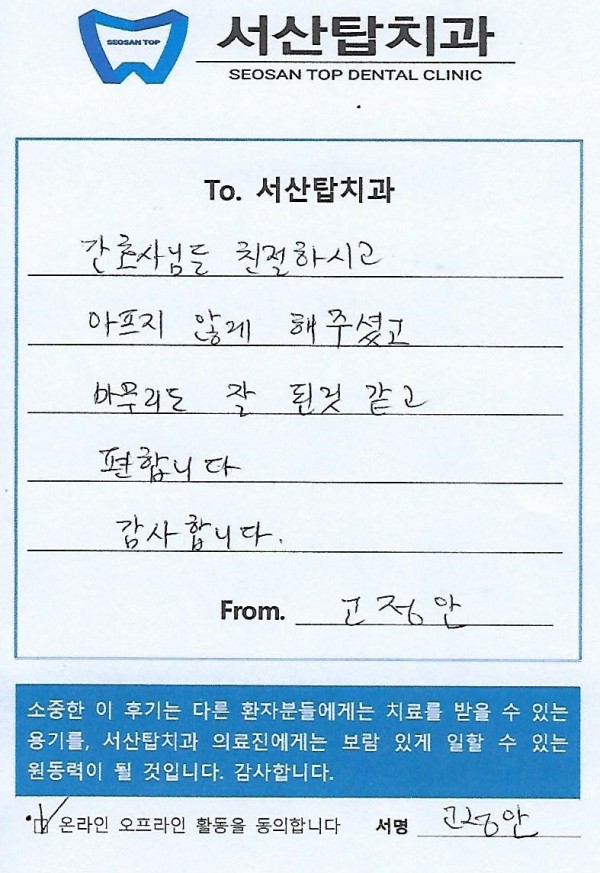 SEOSAN TOP
서산탑치과
SEOSAN TOP DENTAL CLINIC
To. 서산탑치과
간호사님들 친절하시고
아프지 않게 해주셨고
마무리도 잘 된것 같고
편합니다
감사합니다.
From. 고정안
소중한 이 후기는 다른 환자분들에게는 치료를 받을 수 있는
용기를, 서산탑치과 의료진에게는 보람 있게 일할 수 있는
원동력이 될 것입니다. 감사합니다.
온라인 오프라인 활동을 동의합니다 서명 고정안